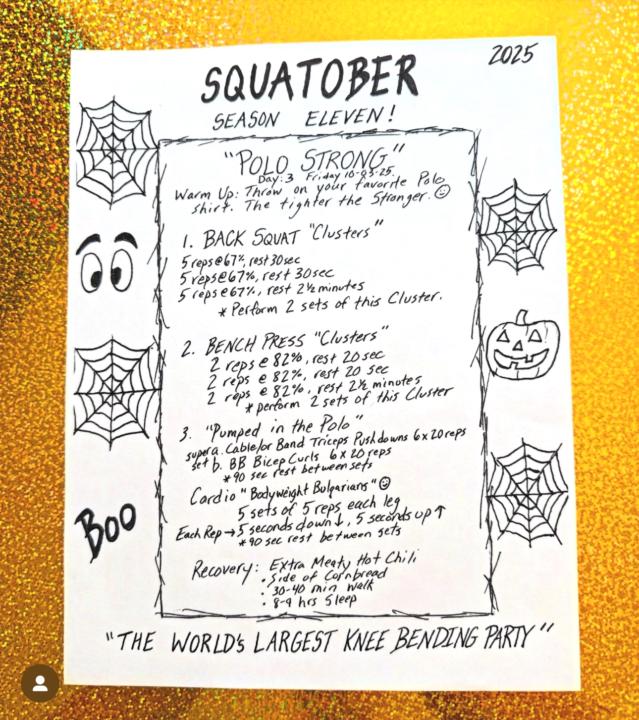 2025
SQUATOBER
SEASON ELEVEN!
"POLO STRONG"
Day:3 Friday 10-03-25
Warm Up: Throw on your favorite Polo
shirt. The tighter the Stronger.
1. BACK SQUAT "Clusters"
5 reps @ 67%, rest 30 sec
5 reps @ 67%, rest 30 sec
5 reps @ 67%, rest 2½ minutes
* Perform 2 sets of this Cluster.
2. BENCH PRESS "Clusters"
2 reps @ 82%, rest 20 sec
2 reps @ 82%, rest 20 sec
2 reps @ 82%, rest 2½ minutes
* perform 2 sets of this Cluster
3. "Pumped in the Polo"
super a. Cable/or Band Triceps Pushdowns 6x20 reps
set b. BB Bicep Curls 6x20 reps
* 90 sec rest between sets
Cardio "Bodyweight Bulgarians"
5 sets of 5 reps each leg
Each Rep → 5 seconds down ↓, 5 seconds up ↑
* 90 sec rest between sets
Recovery: Extra Meaty Hot Chili
• Side of Cornbread
• 30-40 min walk
• 8-9 hrs Sleep
BOO
"THE WORLD'S LARGEST KNEE BENDING PARTY"